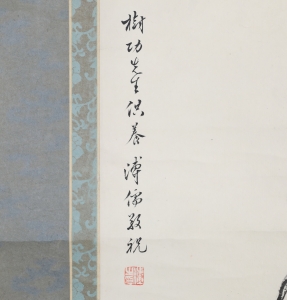 樹功先生供養溥儒敬祝